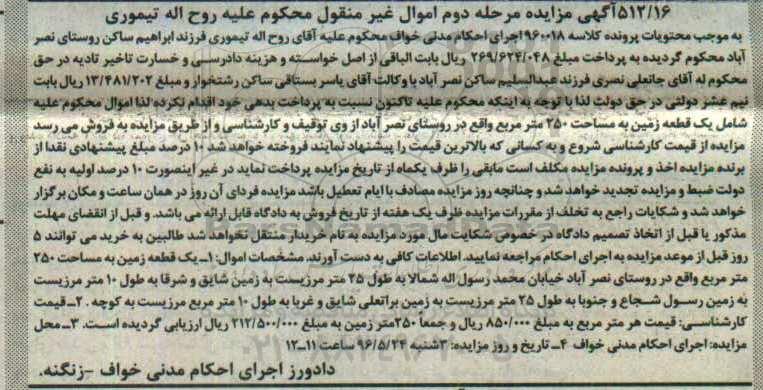 ۵۱۲/۱۶آگهی مزایده مرحله دوم اموال غیر منقول محکوم علیه روح اله تیموری
به موجب محتویات پرونده کلاسه ۹۶۰۰۱۸اجرای احکام مدنی خواف محکوم علیه آقای روح اله تیموری فرزند ابراهیم ساکن روستای نصر
آباد محکوم گردیده به پرداخت مبلغ ۲۶۹/۶۲۴/۰۴۸ ریال بابت الباقی از اصل خواسته و هزینه دادرسی و خسارت تاخیر تادیه در حق
محکوم له آقای جانعلی نصری فرزند عبدالسلیم ساکن نصر آباد با وکالت آقای یاسر بستاقی ساکن رشتخوار و مبلغ ۱۳/۴۸۱/۲۰۲ ریال بابت
نیم عشر دولتی در حق دولت لذا با توجه به اینکه محکوم علیه تاکنون نسبت به پرداخت بدهی خود اقدام نکرده لذا اموال محکوم علیه
شامل یک قطعه زمین به مساحت ۲۵۰ متر مربع واقع در روستای نصر آباد از وی توقیف و کارشناسی و از طریق مزایده به فروش می رسد
مزایده از قیمت کارشناسی شروع و به کسانی که بالاترین قیمت را پیشنهاد نمایند فروخته خواهد شد ۱۰ درصد مبلغ پیشنهادی نقدا از
برنده مزایده اخذ و پرونده مزایده مکلف است مابقی را ظرف یکماه از تاریخ مزایده پرداخت نماید در غیر اینصورت ۱۰ درصد اولیه به نفع
دولت ضبط و مزایده تجدید خواهد شد و چنانچه روز مزایده مصادف با ایام تعطیل باشد مزایده فردای آن روز در همان ساعت و مکان برگزار
خواهد شد و شکایات راجع به تخلف از مقررات مزایده ظرف یک هفته از تاریخ فروش به دادگاه قابل ارائه می باشد. و قبل از انقضای مهلت
مذکور یا قبل از اتخاذ تصمیم دادگاه در خصوص شکایت مال مورد مزایده به نام خریدار منتقل نخواهد شد طالبین به خرید می توانند ۵
روز قبل از موعد مزایده به اجرای احکام مراجعه نمایید. اطلاعات کافی به دست آورند. مشخصات اموال: ۱ــ یک قطعه زمین به مساحت ۲۵۰
متر مربع واقع در روستای نصر آباد خیابان محمد رسول اله شمالا به طول ۲۵ متر مرزیست به زمین شایق و شرقا به طول ۱۰ متر مرزیست
به زمین رسول شجاع و جنوبا به طول ۲۵ متر مرزیست به زمین براتعلی شایق و غربا به طول ۱۰ متر مربع مرزیست به کوچه . ۲ــ قیمت
کارشناسی: قیمت هر متر مربع به مبلغ ۸۵۰/۰۰۰ ریال و جمعا ۲۵۰متر زمین به مبلغ ۲۱۲/۵۰۰/۰۰۰ ریال ارزیابی گردیده است. ۳ــ محل
مزایده: اجرای احکام مدنی خواف ۴ــ تاریخ و روز مزایده: ۳شنبه ۹۶/۵/۲۴ ساعت ۱۱ــ۱۲
دادورز اجرای احکام مدنی خواف –زنگنه.